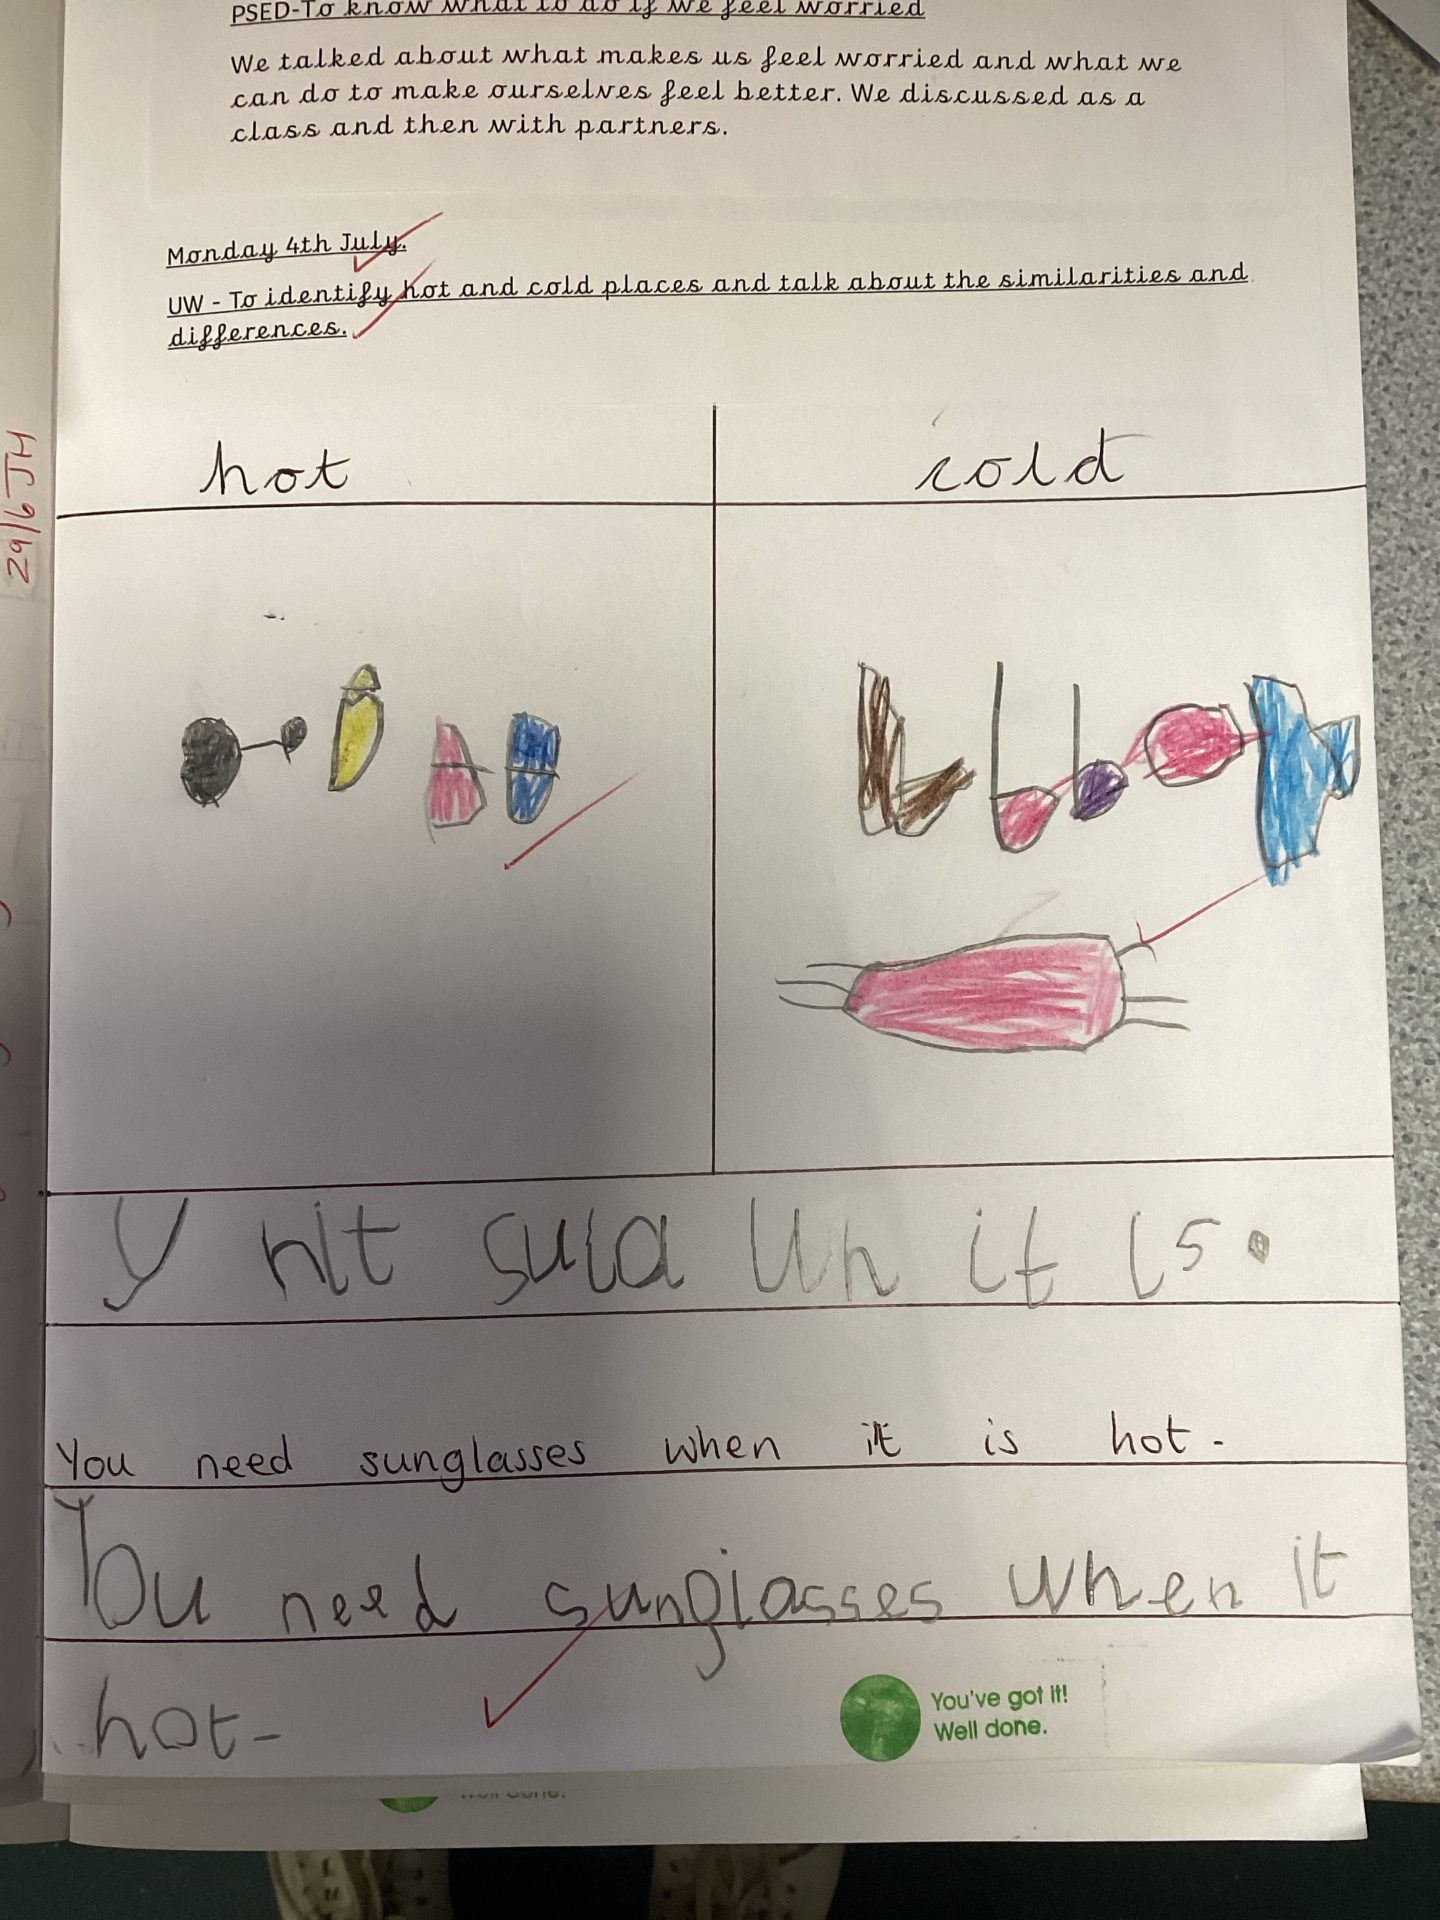 PSED-To know what to do if we feel worried
We talked about what makes us feel worried and what we
can do to make ourselves feel better. We discussed as a
class and then with partners.
Monday 4th July.
UW - To identify hot and cold places and talk about the similarities and
differences.
29/6 JH
hot cold
Y nit sula Un it is.
You need sunglasses when it is hot.
You need sunglasses when it
hot-
You've got it!
Well done.
Well done.